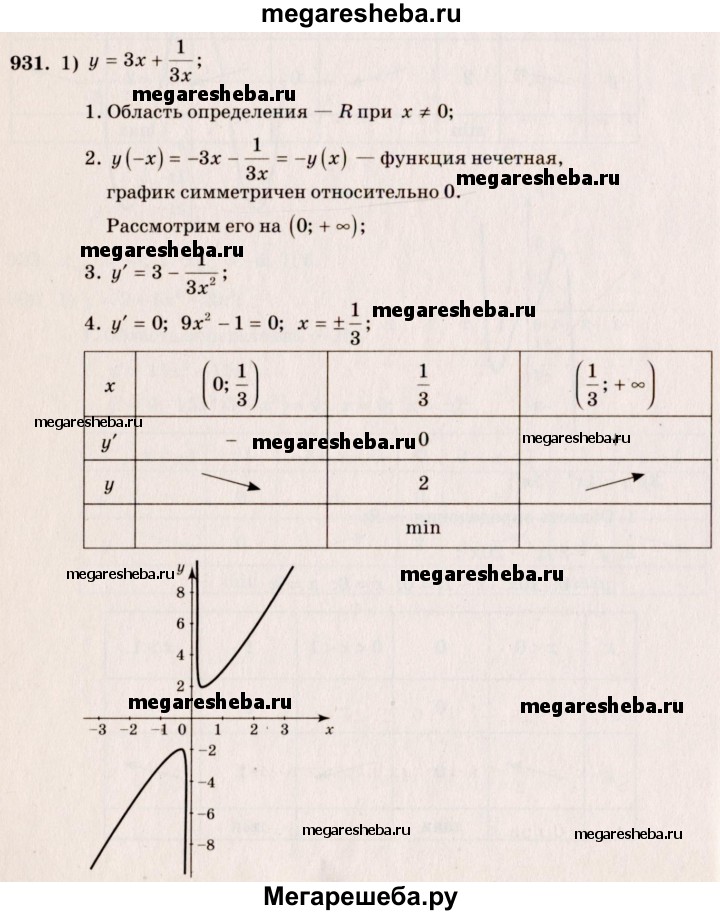 megaresheba.ru
931. 1) y = 3x + 1/3x;
megaresheba.ru
1. Область определения — R при x ≠ 0;
2. y(−x) = −3x − 1/3x = −y(x) — функция нечетная,
megaresheba.ru
график симметричен относительно 0.
Рассмотрим его на (0; + ∞);
megaresheba.ru
3. y′ = 3 − 1/3x²;
megaresheba.ru
4. y′ = 0; 9x² − 1 = 0; x = ± 1/3;
x (0; 1/3) 1/3 (1/3; + ∞)
megaresheba.ru
y′ − megaresheba.ru 0 megaresheba.ru
y 2
min
megaresheba.ru y megaresheba.ru
8
6
4
2
megaresheba.ru megaresheba.ru
−3 −2 −1 0 1 2 3 x
−2
−4
−6
−8
megaresheba.ru megaresheba.ru
Мегарешеба.ру